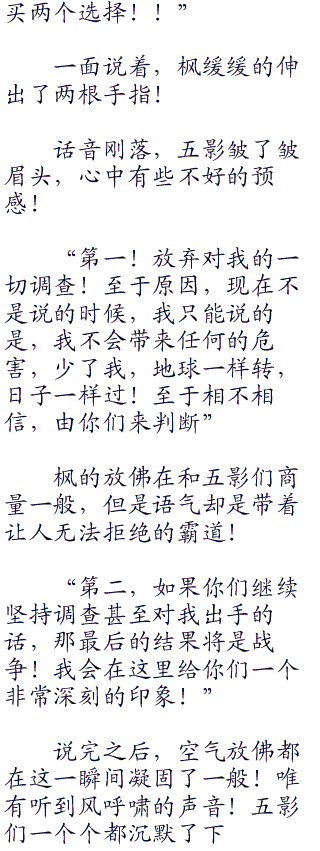 买两个选择！！”
一面说着，枫缓缓的伸
出了两根手指！
话音刚落，五影皱了皱
眉头，心中有些不好的预
感！
“第一！放弃对我的一
切调查！至于原因，现在不
是说的时候，我只能说的
是，我不会带来任何的危
害，少了我，地球一样转，
日子一样过！至于相不相
信，由你们来判断”
枫的放佛在和五影们商
量一般，但是语气却是带着
让人无法拒绝的霸道！
“第二，如果你们继续
坚持调查甚至对我出手的
话，那最后的结果将是战
争！我会在这里给你们一个
非常深刻的印象！”
说完之后，空气放佛都
在这一瞬间凝固了一般！唯
有听到风呼啸的声音！五影
们一个个都沉默了下